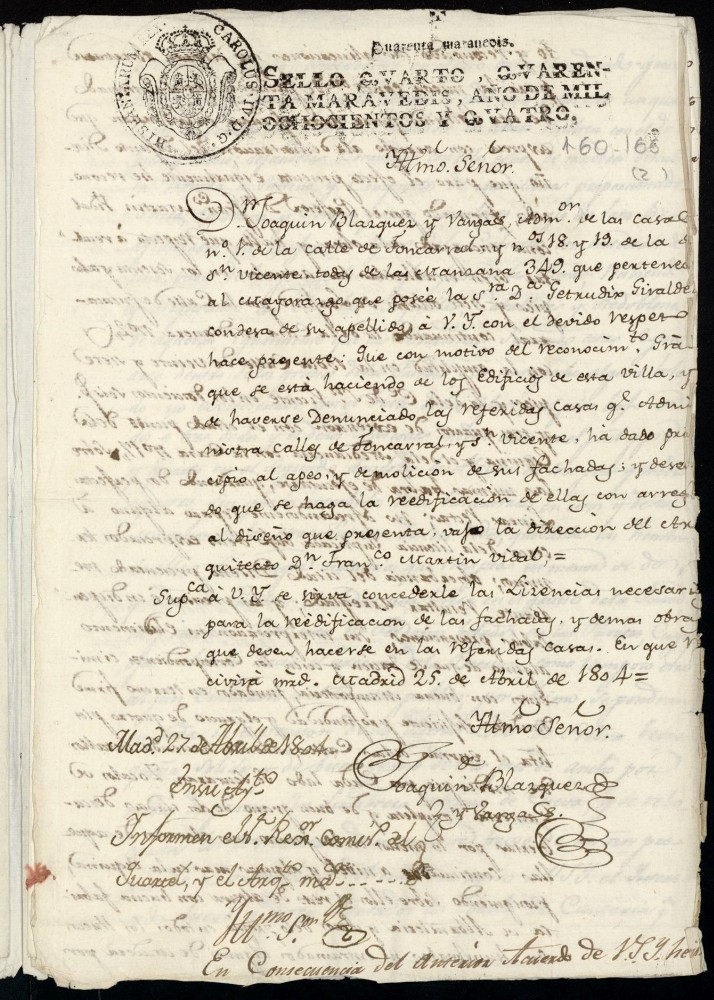 CAROLUS IV D. G.
HISPANIARUM REX
Quarenta maravedis.
SELLO QVARTO, QVAREN-
TA MARAVEDIS, AÑO DE MIL
OCHOCIENTOS Y QVATRO.
160-166
(2)
Yltmo. Señor.
Dn. Joaquin Blazquez y Vargas, Admor. de las casas
nº. 1. de la calle de Foncarral, y nos. 18. y 19. de la d
Sn. Vicente, todas de las Manzana 349. que pertenec
al Mayorazgo que poseé la Sra. Da. Getrudix Giralde
condesa de sus apellidos, à V. Y. con el devido respeto
hace presente: Que con motivo del reconocimto. Grãl
que se está haciendo de los Edificios de esta villa, y
de haverse Denunciado las referidas casas q.e Admi
nistra calles de Foncarral, y Sn. Vicente, hà dado prin
cipio al apeo, y demolicion de sus fachadas; y desean
do que se haga la reedificación de ellas con arreg
al diseño que presenta, vajo la dirección del Ar
quitecto Dn. Franco. Martin Vidal; =
Supca. à V. Y. se sirva concederle las Lizencias necesari
para la reedificacion de las fachadas, y demas obras
que deven hacerse en las referidas casas. En que re
civirà mrd. Madrid 25. de Abril de 1804=
Yltmo Señor.
Madd. 27. de Abril de 1804.
Joaquin de Blazquez
En su Ayto.
y Vargas.
Informen el Sr. Rexor. Comiso. del
Quartel, y el Arqto. mor.
Yllmo. Sor.
En Consecuencia del anterior Acuerdo de V. S. Y. hemos